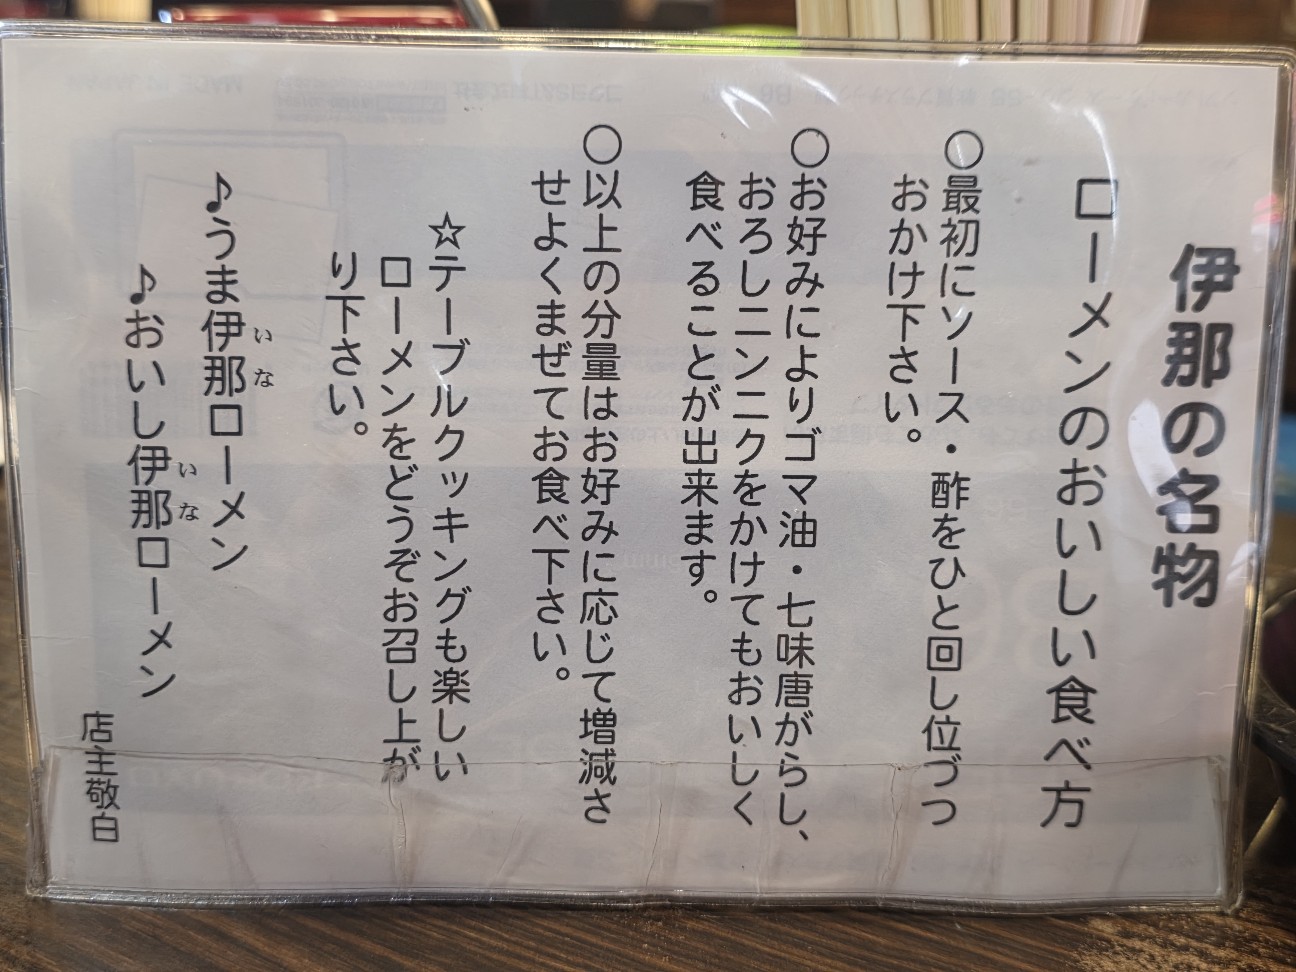 伊那の名物
ローメンのおいしい食べ方
○最初にソース・酢をひと回し位づつ
おかけ下さい。
○お好みによりゴマ油・七味唐がらし、
おろしニンニクをかけてもおいしく
食べることが出来ます。
○以上の分量はお好みに応じて増減さ
せよくまぜてお食べ下さい。
☆テーブルクッキングも楽しい
ローメンをどうぞお召し上が
り下さい。
♪うま伊那ローメン
いな
♪おいし伊那ローメン
いな
店主敬白